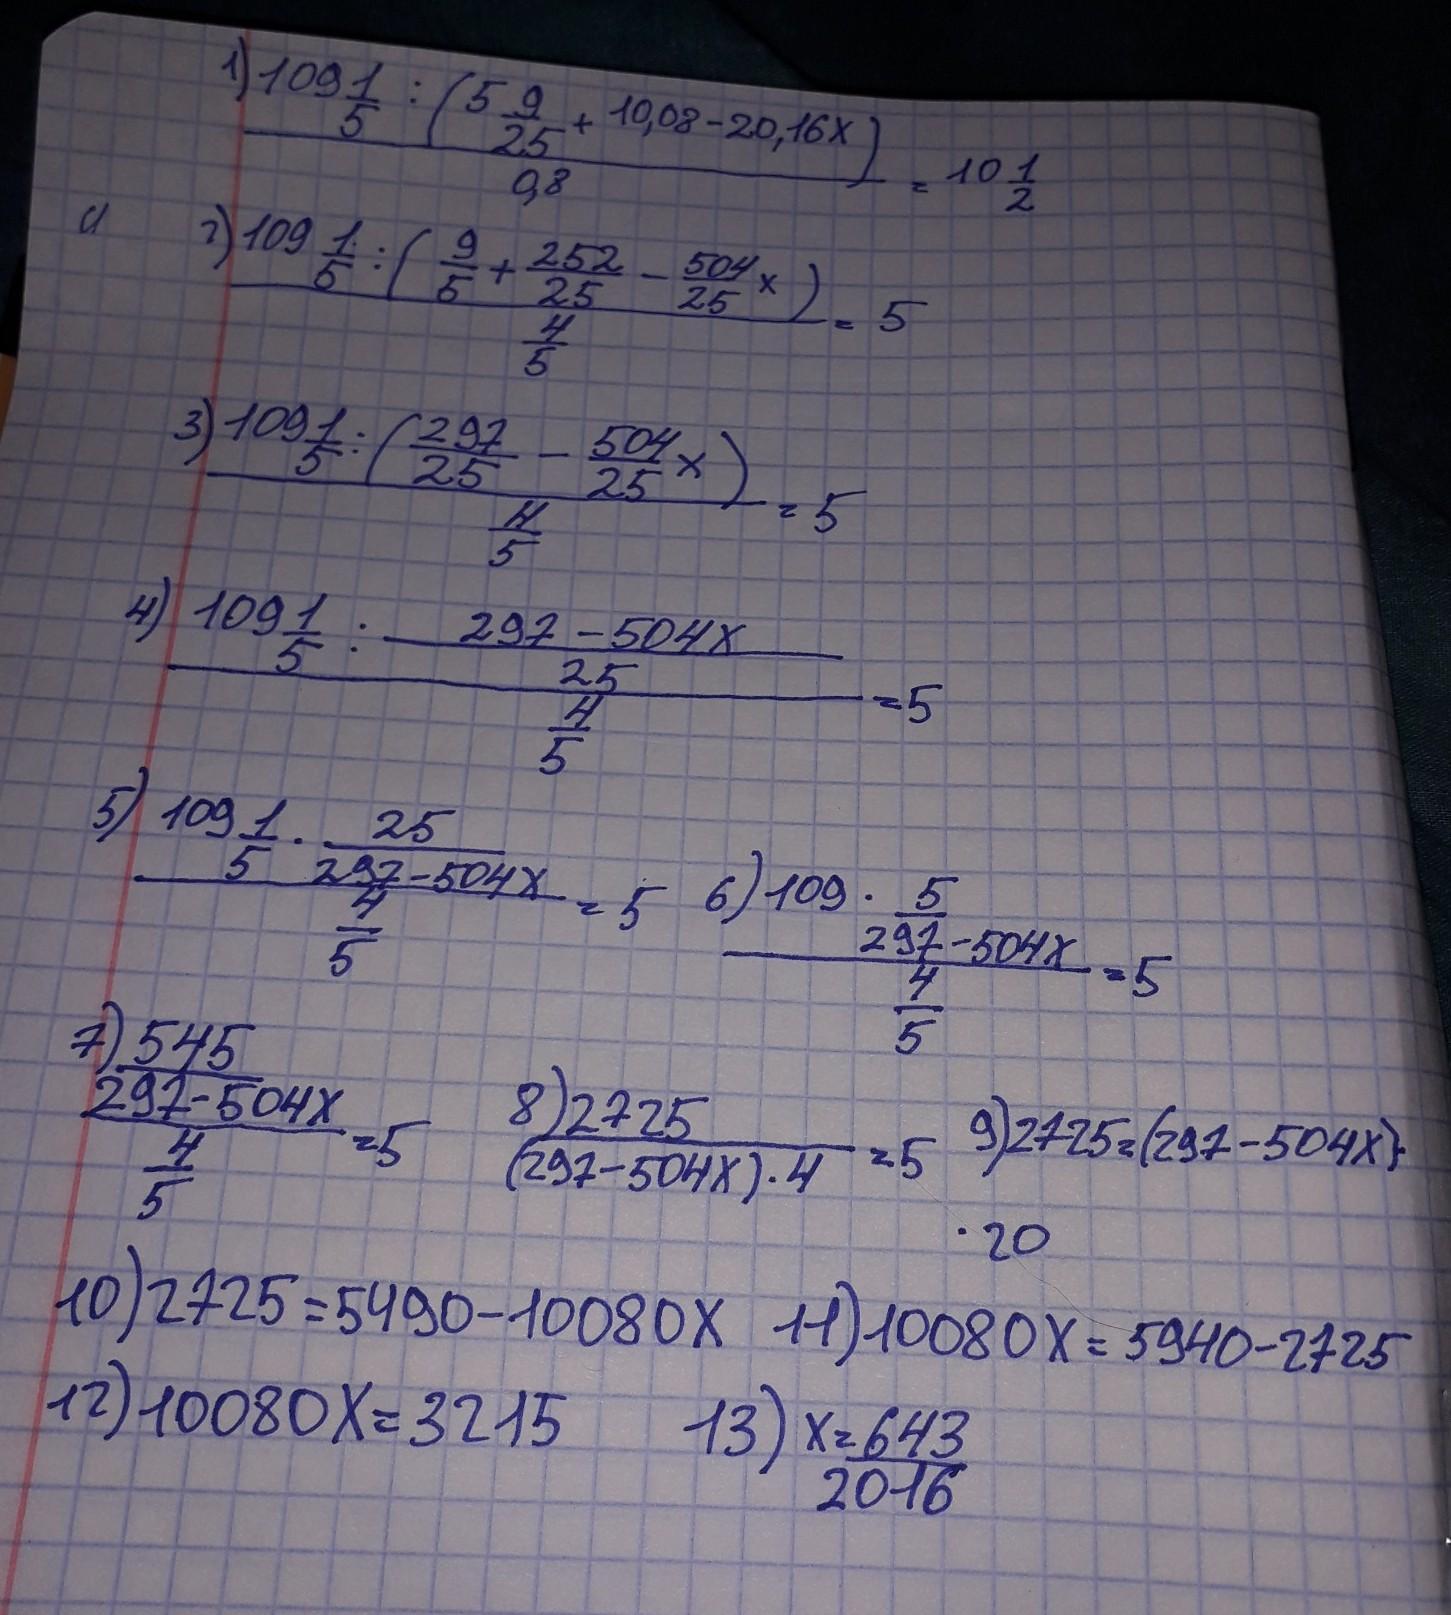 1) 109 1/5 : (5 9/25 + 10,08 - 20,16x) / 0,8 = 10 1/2
2) 109 1/5 : (9/5 + 252/25 - 504/25 x) / 4/5 = 5
3) 109 1/5 : (297/25 - 504/25 x) / 4/5 = 5
4) 109 1/5 : (297 - 504x)/25 / 4/5 = 5
5) 109 1/5 · 25/(297 - 504x) / 4/5 = 5
6) 109 · 5/(297 - 504x) / 4/5 = 5
7) 545/(297 - 504x) / 4/5 = 5
8) 2725/((297 - 504x) · 4) = 5
9) 2725 = (297 - 504x) ·
· 20
10) 2725 = 5490 - 10080x
11) 10080x = 5940 - 2725
12) 10080x = 3215
13) x = 643/2016